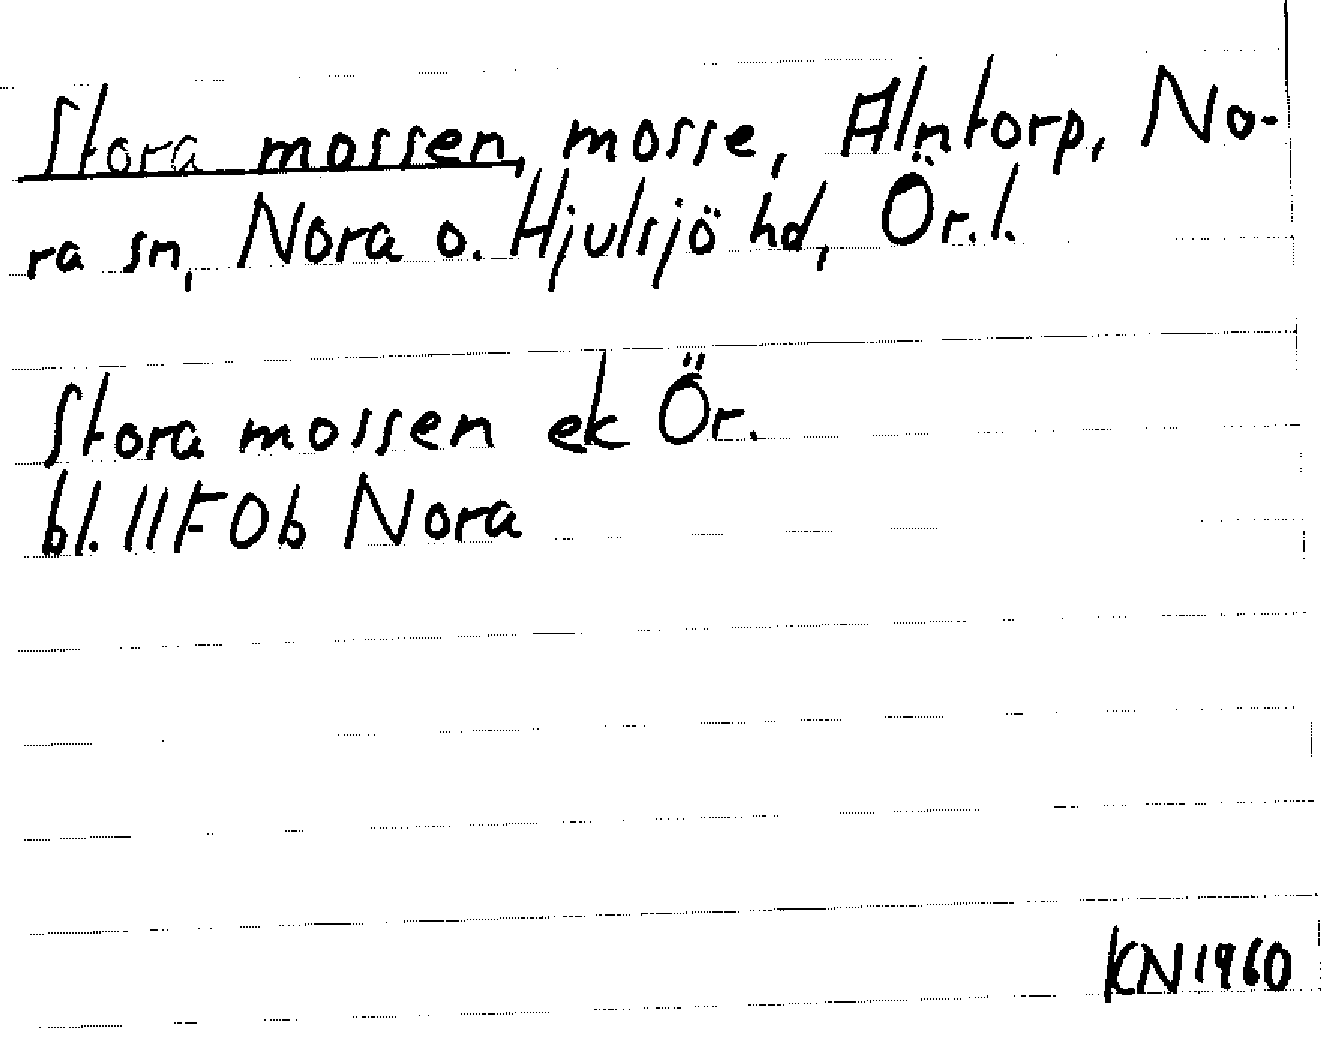 Stora mossen, mosse, Alntorp, No-
ra sn, Nora o. Hjulsjö hd, Ör.l.
Stora mossen ek Ör.
bl. 11F0b Nora
KN1960